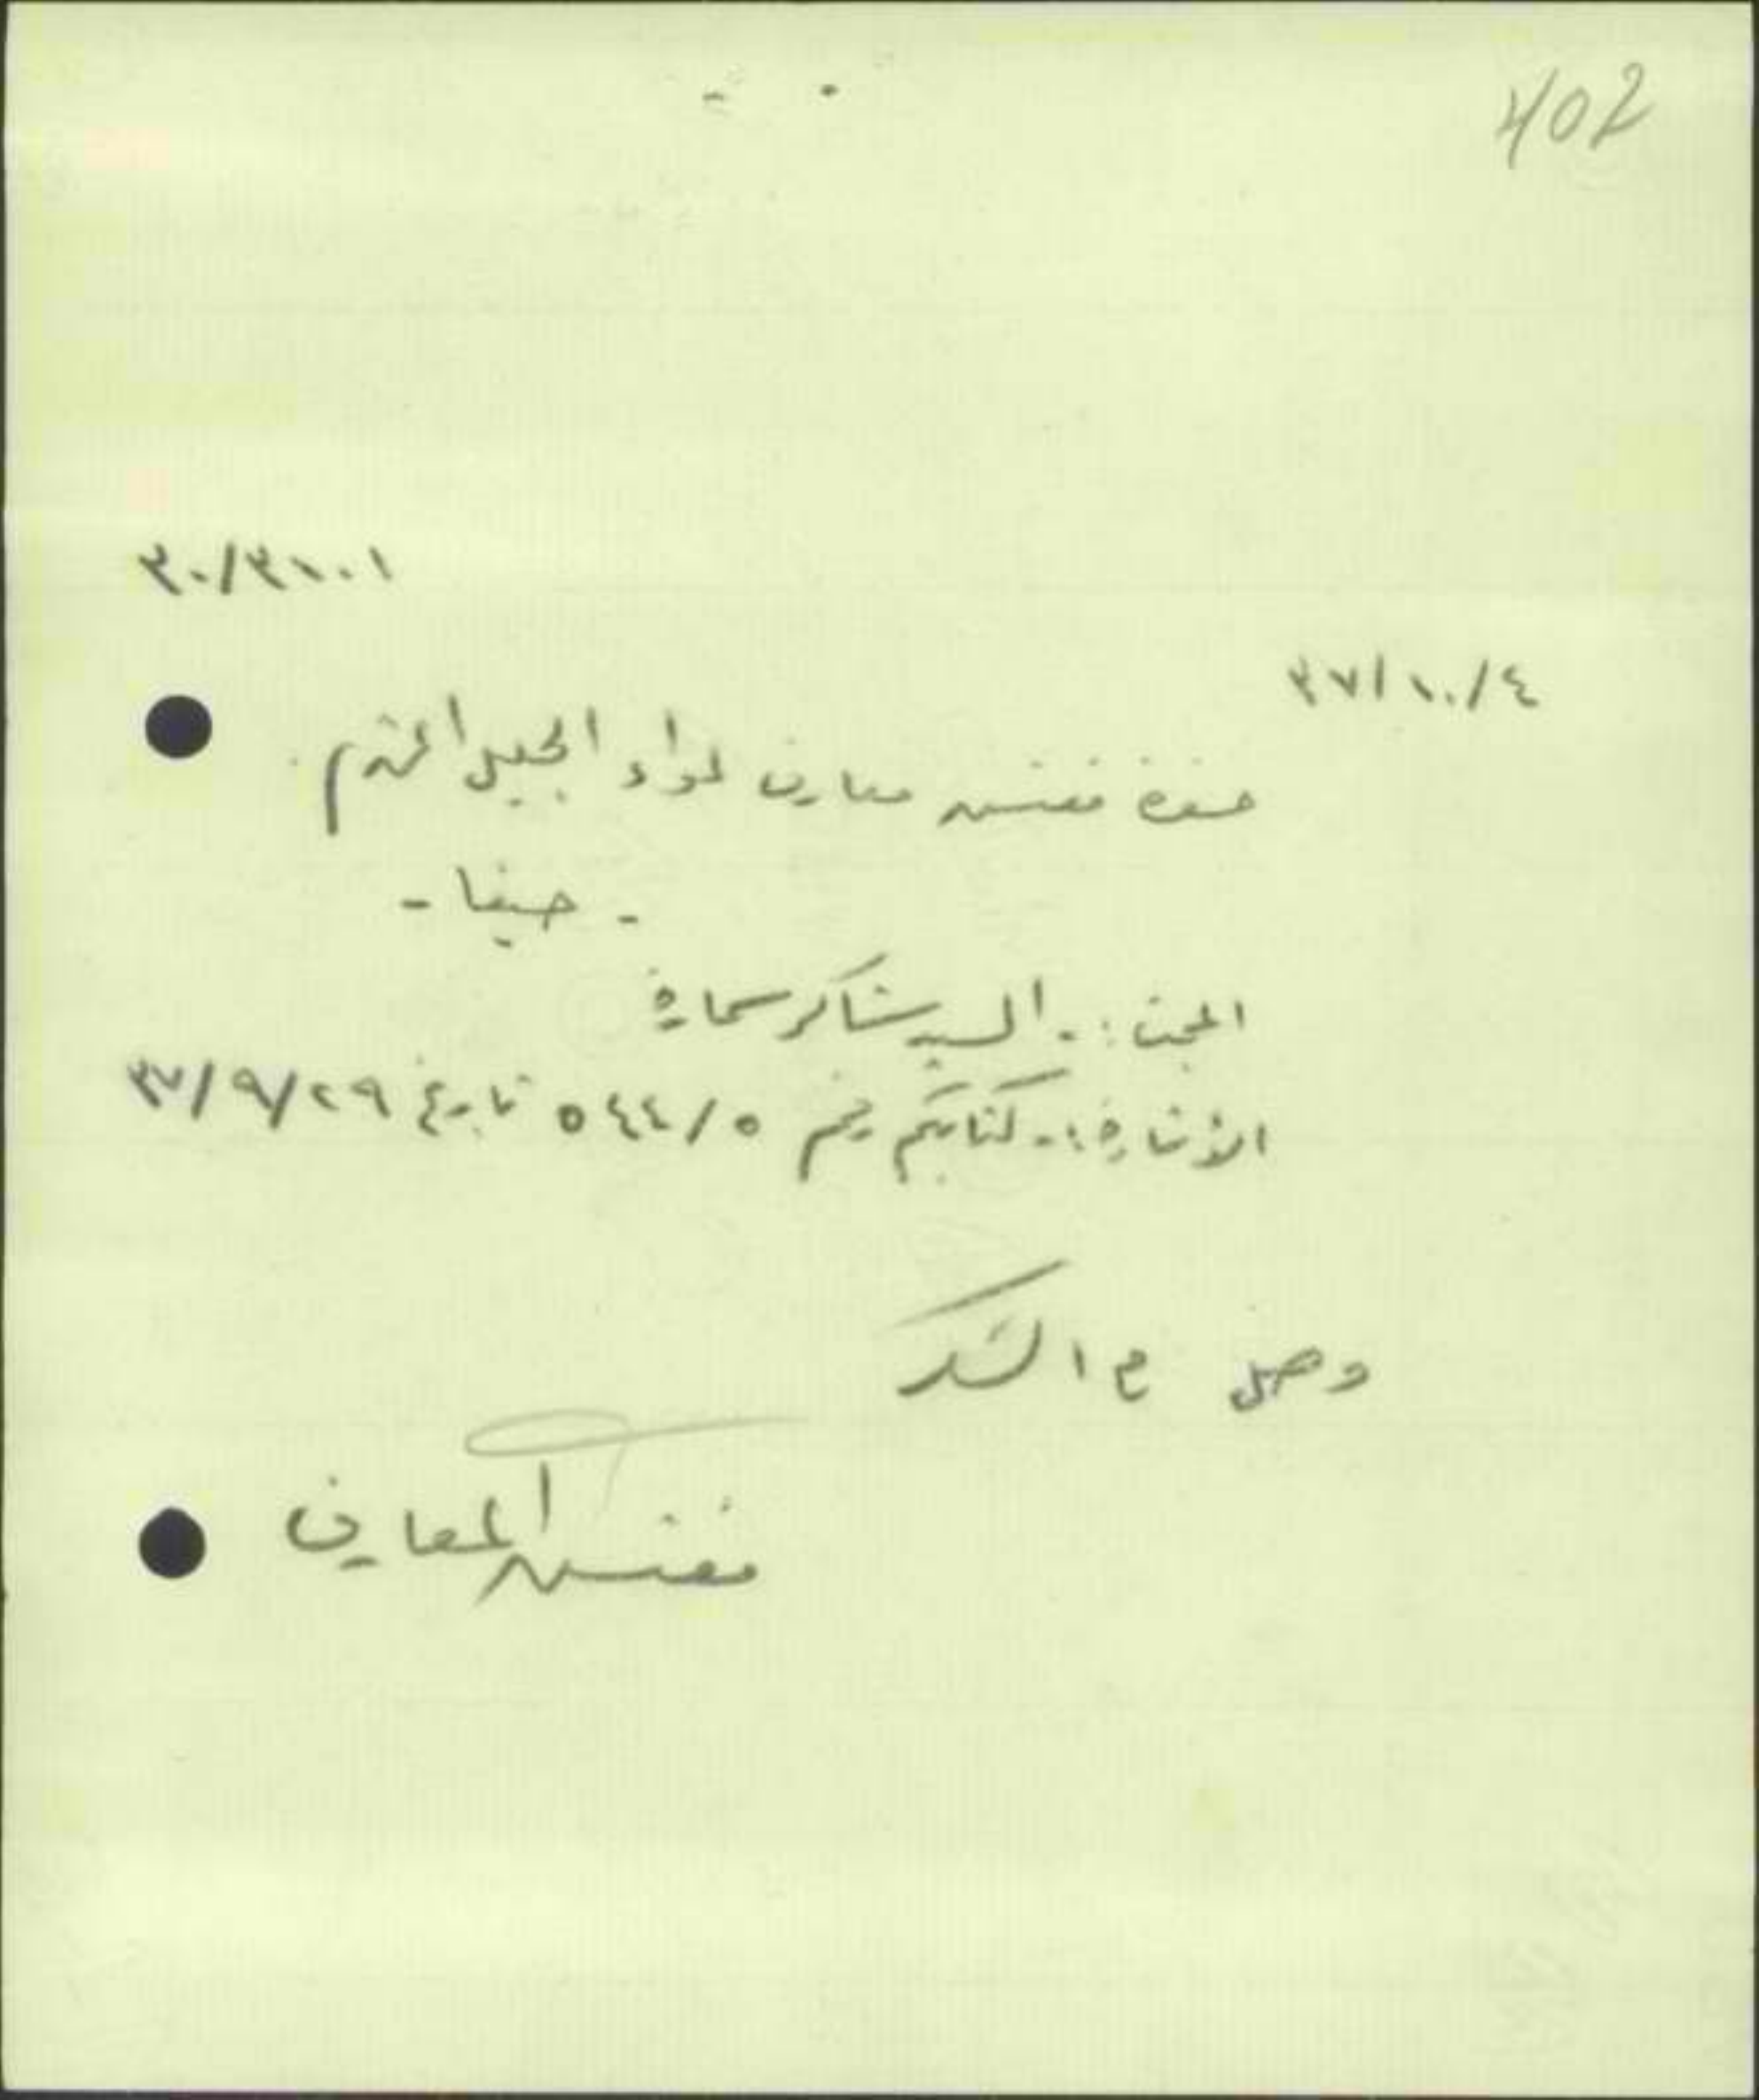 402
٣٠/٣١٠٠١
٣٧/١٠/٤
حضرة مفتش معارف لواء الجليل المحترم
- حيفا -
المبحث :- السيد شاكر سمارة
الأشارة :- كتابكم رقم ٥٤٤/٥ تاريخ ٣٧/٩/٢٩
وصل مع الشكر
مفتش المعارف